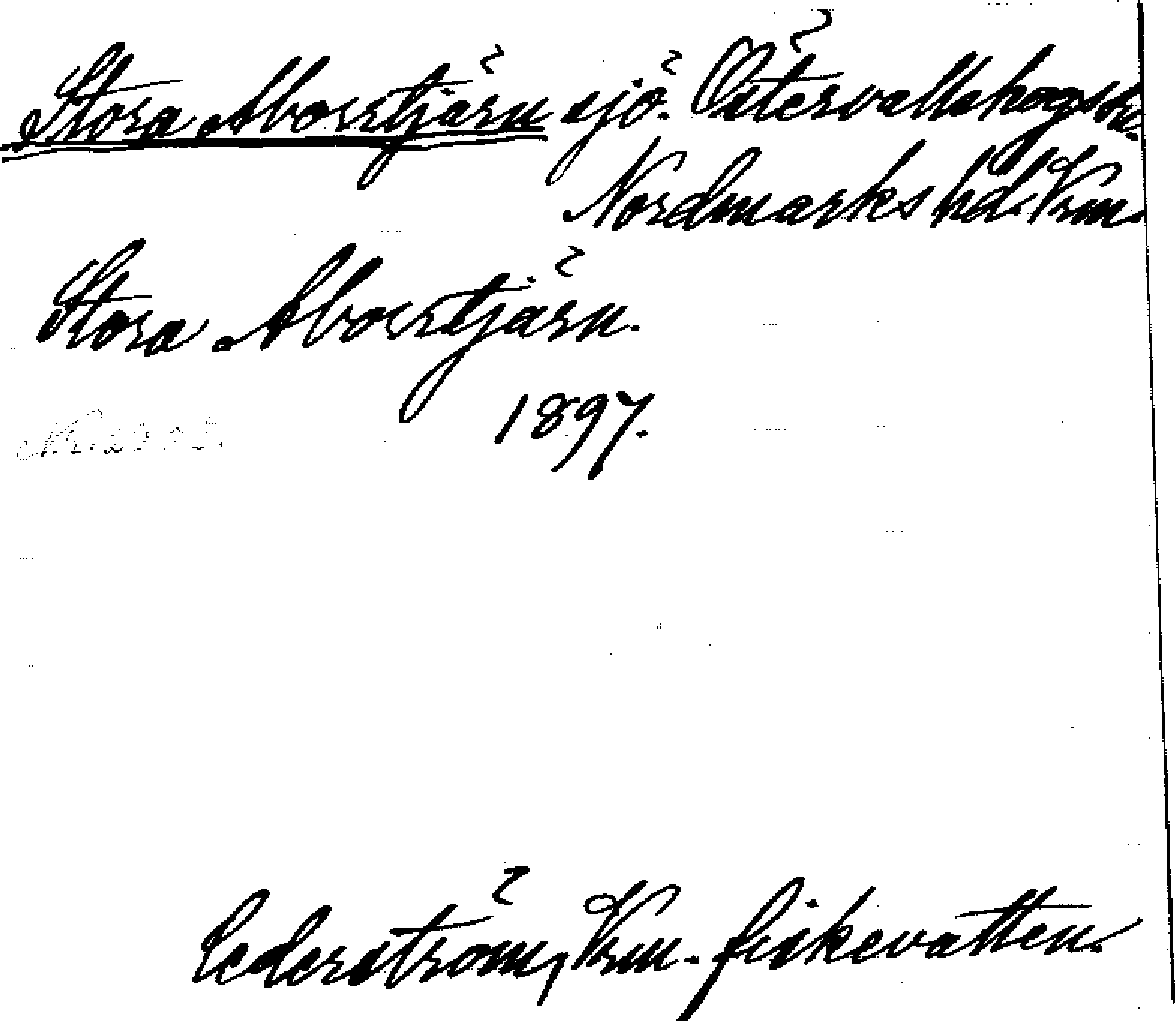 Stora Aborrtjärn sjö. Östervallskogs sn.
Nordmarks hd. Vrm.
Stora Aborrtjärn.
1897.
Cederström, Vrm. fiskevatten.